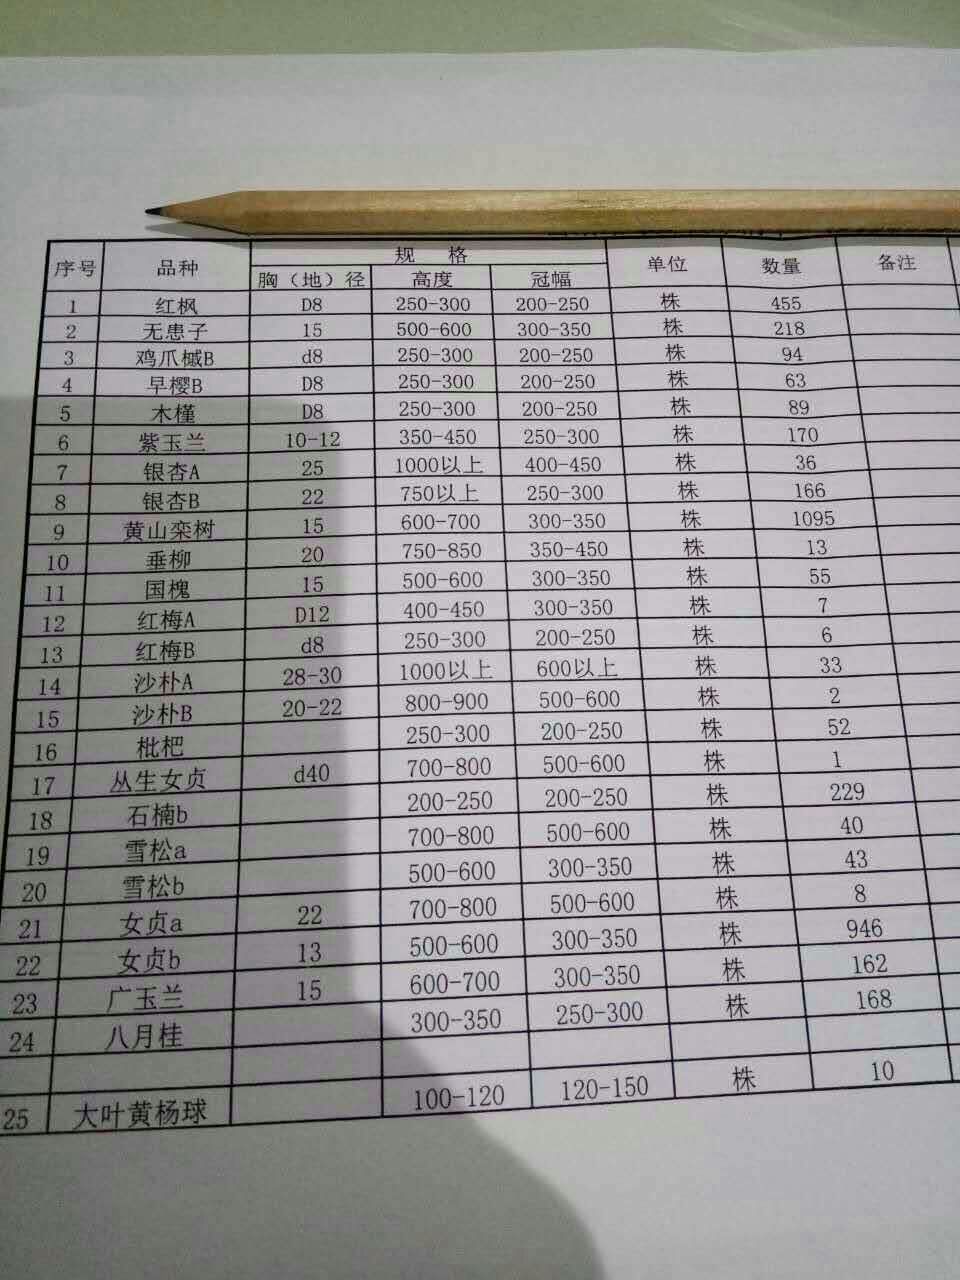 序号 品种 规 格 单位 数量 备注
胸（地）径 高度 冠幅
1 红枫 D8 250-300 200-250 株 455
2 无患子 15 500-600 300-350 株 218
3 鸡爪槭B d8 250-300 200-250 株 94
4 早樱B D8 250-300 200-250 株 63
5 木槿 D8 250-300 200-250 株 89
6 紫玉兰 10-12 350-450 250-300 株 170
7 银杏A 25 1000以上 400-450 株 36
8 银杏B 22 750以上 250-300 株 166
9 黄山栾树 15 600-700 300-350 株 1095
10 垂柳 20 750-850 350-450 株 13
11 国槐 15 500-600 300-350 株 55
12 红梅A D12 400-450 300-350 株 7
13 红梅B d8 250-300 200-250 株 6
14 沙朴A 28-30 1000以上 600以上 株 33
15 沙朴B 20-22 800-900 500-600 株 2
16 枇杷 250-300 200-250 株 52
17 丛生女贞 d40 700-800 500-600 株 1
18 石楠b 200-250 200-250 株 229
19 雪松a 700-800 500-600 株 40
20 雪松b 500-600 300-350 株 43
21 女贞a 22 700-800 500-600 株 8
22 女贞b 13 500-600 300-350 株 946
23 广玉兰 15 600-700 300-350 株 162
24 八月桂 300-350 250-300 株 168
25 大叶黄杨球 100-120 120-150 株 10